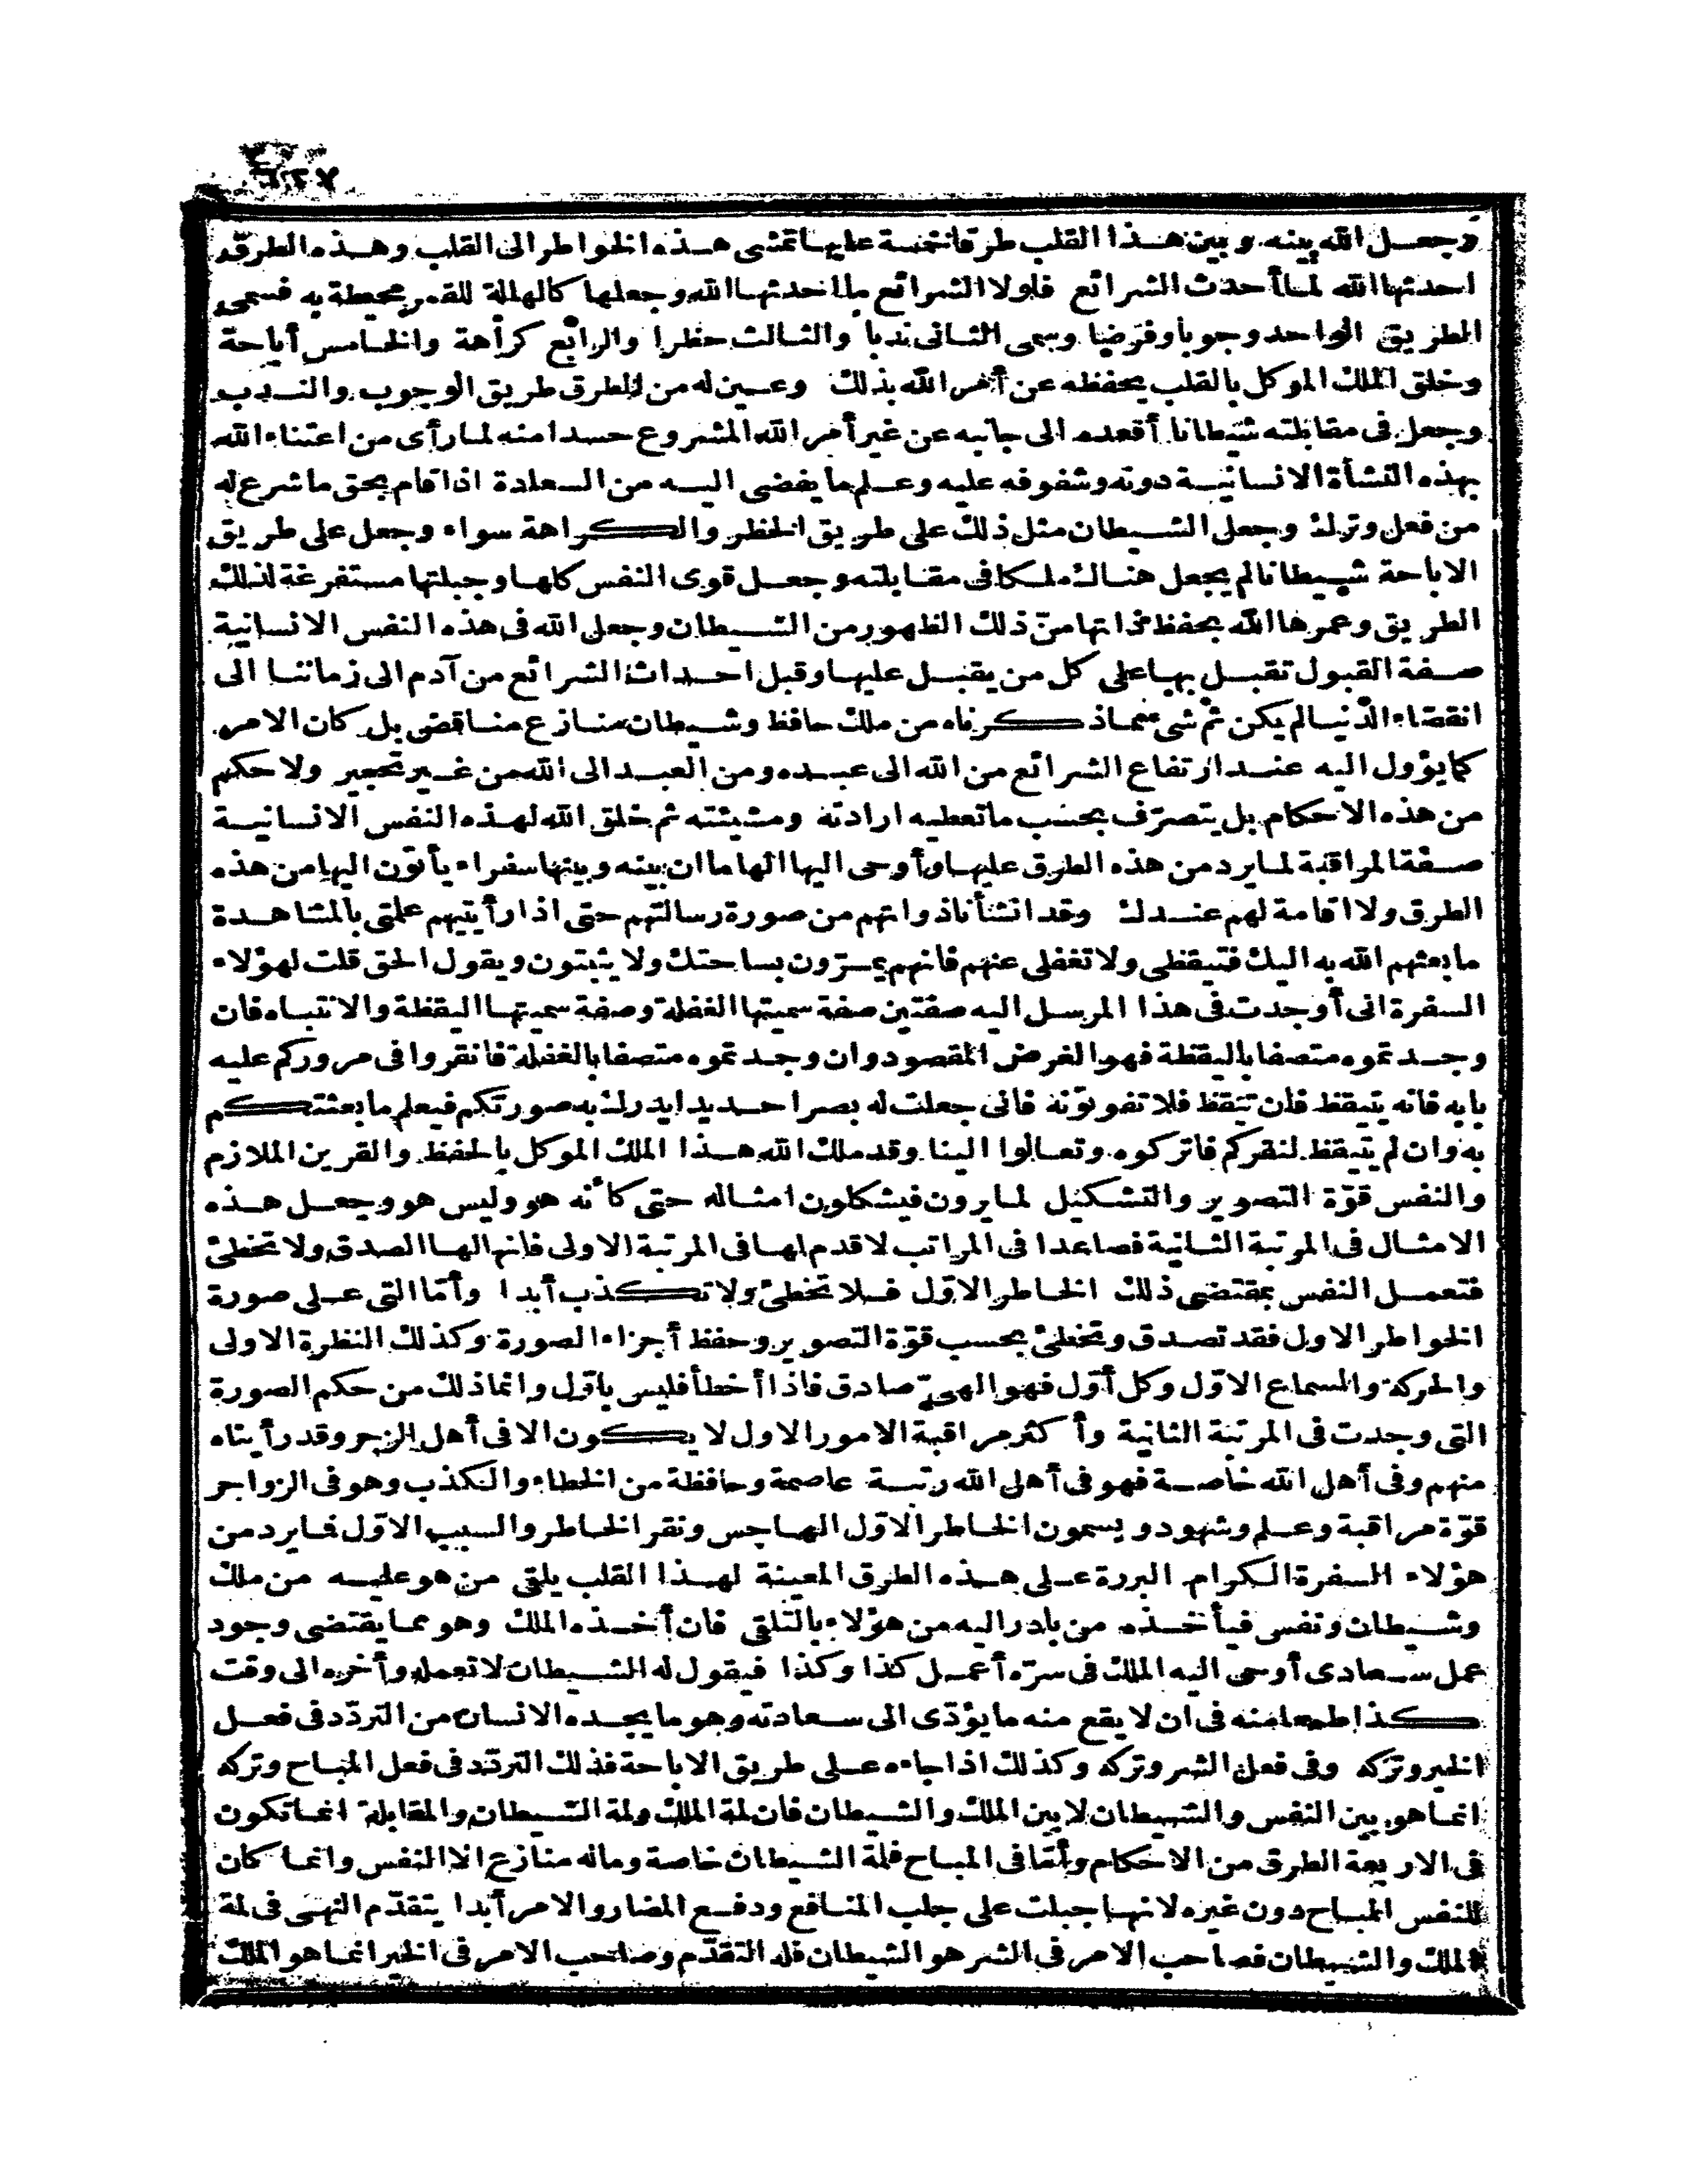 وجعل الله بينه وبين هذا القلب طرقا خمسة عليها تمشى هذه الخواطر الى القلب وهذه الطرق
احدثها الله لما أحدث الشرائع فلولا الشرائع ما احدثها الله وجعلها كالهالة للقمر محيطة به فسمى
الطريق الواحد وجوبا وفرضا وسمى الثانى ندبا والثالث حظرا والرابع كراهة والخامس أباحة
وخلق الملك الموكل بالقلب يحفظه عن أمر الله بذلك وعين له من الطرق طريق الوجوب والندب
وجعل فى مقابلته شيطانا أقعده الى جانبه عن غير أمر الله المشروع حسدا منه لما رأى من اعتناء الله
بهذه النشأة الانسانية دونه وشفوفه عليه وعلم ما يفضى اليه من السعادة اذا قام بحق ما شرع له
من فعل وترك وجعل الشيطان مثل ذلك على طريق الحظر والكراهة سواء وجعل على طريق
الاباحة شيطانا لم يجعل هناك ملكا فى مقابلته وجعل قوى النفس كلها وجبلتها مستفرغة لذلك
الطريق وعمرها الله بحفظ ذاتها من ذلك الظهور من الشيطان وجعل الله فى هذه النفس الانسانية
صفة القبول تقبل بها على كل من يقبل عليها وقبل احداث الشرائع من آدم الى زماننا الى
انقضاء الدنيا لم يكن ثم شئ مما ذكرناه من ملك حافظ وشيطان منازع مناقض بل كان الامر
كما يؤول اليه عند ارتفاع الشرائع من الله الى عبده ومن العبد الى الله من غير تحجير ولا حكم
من هذه الاحكام بل يتصرّف بحسب ما تعطيه ارادته ومشيئته ثم خلق الله لهذه النفس الانسانية
صفة المراقبة لما يرد من هذه الطرق عليها وأوحى اليها الهاما ان بينه وبينها سفراء يأتون اليها من هذه
الطرق ولا اقامة لهم عندك وقد انشأنا ذواتهم من صورة رسالتهم حتى اذا رأيتيهم علمتى بالمشاهدة
ما بعثهم الله به اليك فتيقظى ولا تغفلى عنهم فانهم يمرّون بساحتك ولا يثبتون ويقول الحق قلت لهؤلاء
السفرة انى أوجدت فى هذا المرسل اليه صفتين صفة سميتها الغفلة وصفة سميتها اليقظة والانتباه فان
وجدتموه متصفا باليقظة فهو الغرض المقصود وان وجدتموه متصفا بالغفلة فانقروا فى مروركم عليه
بابه فانه يتيقظ فان تيقظ فلا تفوتوّنه فانى جعلت له بصرا حديدا يدرك به صورتكم فيعلم ما بعثتكم
به وان لم يتيقظ لنقركم فاتركوه وتعالوا الينا وقد ملك الله هذا الملك الموكل بالحفظ والقرين الملازم
والنفس قوّة التصوير والتشكيل لما يرون فيشكلون امثاله حتى كأنه هو وليس هو وجعل هذه
الامثال فى المرتبة الثانية فصاعدا فى المراتب لا قدم لها فى المرتبة الاولى فانها لها الصدق ولا تخطئ
فتعمل النفس بمقتضى ذلك الخاطر الاوّل فلا تخطئ ولا تكذب أبدا وأمّا التى على صورة
الخواطر الاول فقد تصدق وتخطئ بحسب قوّة التصوير وحفظ أجزاء الصورة وكذلك النظرة الاولى
والحركة والسماع الاوّل وكل أوّل فهو الهىّ صادق فاذا أخطأ فليس باوّل وانما ذلك من حكم الصورة
التى وجدت فى المرتبة الثانية وأكثر مراقبة الامور الاول لا يكون الا فى أهل الزجر وقد رأيناه
منهم وفى أهل الله خاصة فهو فى أهل الله رتبة عاصمة وحافظة من الخطاء والكذب وهو فى الزواجر
قوّة مراقبة وعلم وشهود ويسمون الخاطر الاوّل الهاجس ونقر الخاطر والسبب الاوّل فما يرد من
هؤلاء السفرة الكرام البررة على هذه الطرق المعينة لهذا القلب يلقى من هو عليه من ملك
وشيطان ونفس فيأخذه من بادر اليه من هؤلاء بالتلقى فان أخذه الملك وهو مما يقتضى وجود
عمل سعادى أوحى اليه الملك فى سرّه أعمل كذا وكذا فيقول له الشيطان لا تعمله وأخره الى وقت
كذا طمعا منه فى ان لا يقع منه ما يؤدّى الى سعادته وهو ما يجده الانسان من التردّد فى فعل
الخير وتركه وفى فعل الشر وتركه وكذلك اذا جاءه على طريق الاباحة فذلك التردّد فى فعل المباح وتركه
انما هو بين النفس والشيطان لا بين الملك والشيطان فان لمة الملك ولمة الشيطان والمقابلة انما تكون
فى الاربعة الطرق من الاحكام وأمّا فى المباح فلمة الشيطان خاصة وماله منازع الا النفس وانما كان
للنفس المباح دون غيره لانها جبلت على جلب المنافع ودفع المضار والامر أبدا يتقدّم النهى فى لمة
الملك والشيطان فصاحب الامر فى الشر هو الشيطان فله التقدّم وصاحب الامر فى الخير انما هو الملك